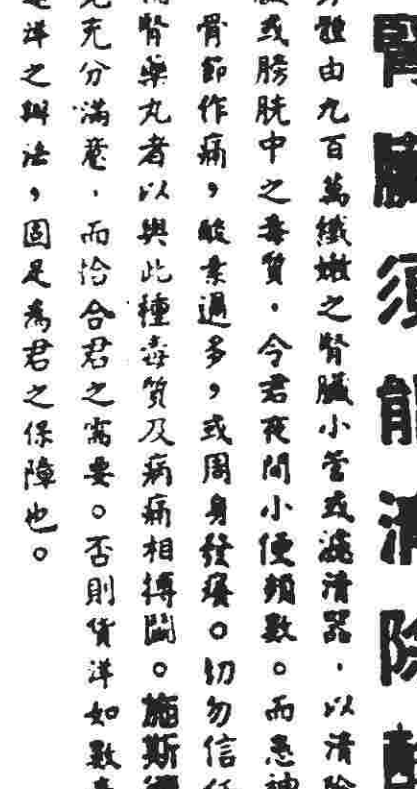 腎臟須能清除
體由九百萬纖嫩之腎臟小管或濾清器，以清除
或膀胱中之毒質，令君夜間小便頻數。而患神
骨節作痛，酸素過多，或周身發癢。切勿信任
腎藥丸者以與此種毒質及病痛相搏鬪。施斯
充分滿意，而恰合君之需要。否則貨洋如數
洋之辦法，固足為君之保障也。